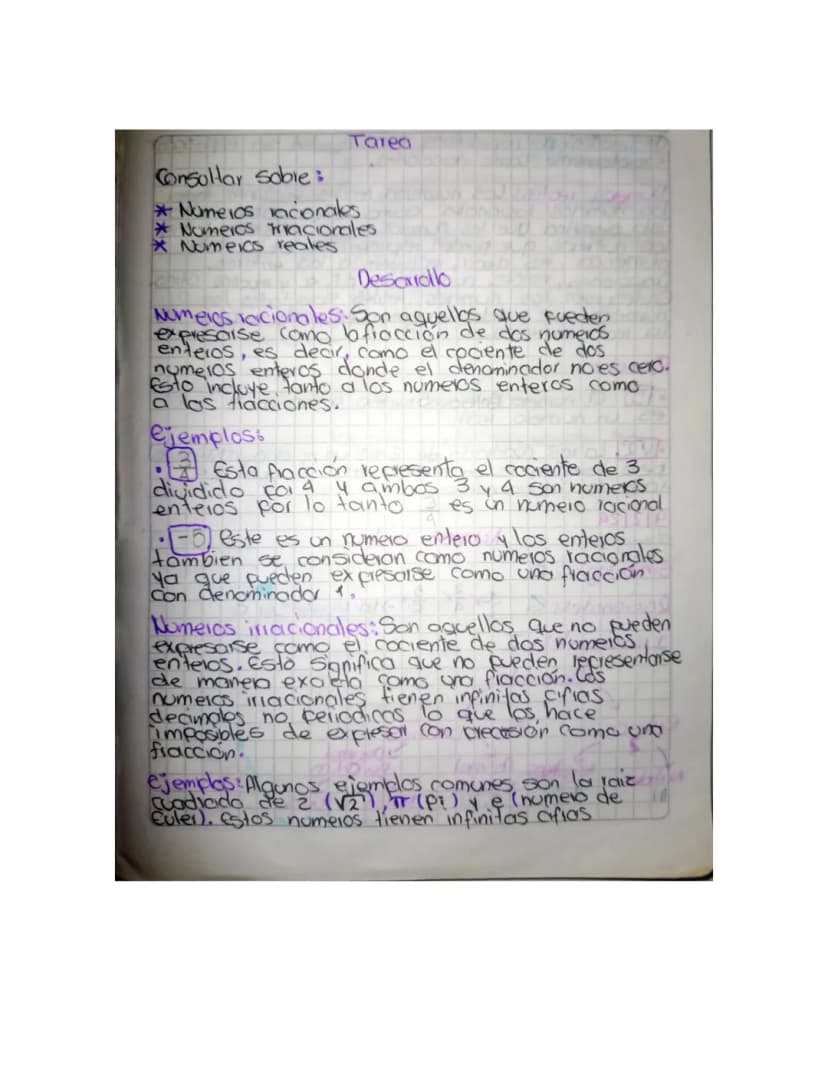 Tarea
Consultar sobre:
* Numeros racionales
* Numeros irracionales
* Numeros reales
Desarrollo
Numeros racionales: Son aquellos que pueden
expresarse como la fracción de dos numeros
enteros, es decir, como el cociente de dos
numeros enteros donde el denominador no es cero.
Esto incluye tanto a los numeros enteros como
a las fracciones.
Ejemplos:
• 3/4 Esta fracción representa el cociente de 3
dividido por 4 y ambos 3 y 4 son numeros
enteros por lo tanto 3/4 es un numero racional
• -5 Este es un numero entero y los enteros
tambien se consideran como numeros racionales
ya que pueden expresarse como una fracción
con denominador 1.
Numeros irracionales: Son aquellos que no pueden
expresarse como el cociente de dos numeros
enteros. Esto significa que no pueden representarse
de manera exacta como una fracción. Los
numeros irracionales tienen infinitas cifras
decimales no periodicas lo que los hace
imposibles de expresar con precisión como una
fracción.
Ejemplos: Algunos ejemplos comunes son la raiz
cuadrada de 2 (√2), π (Pi) y e (numero de
Euler). Estos numeros tienen infinitas cifras